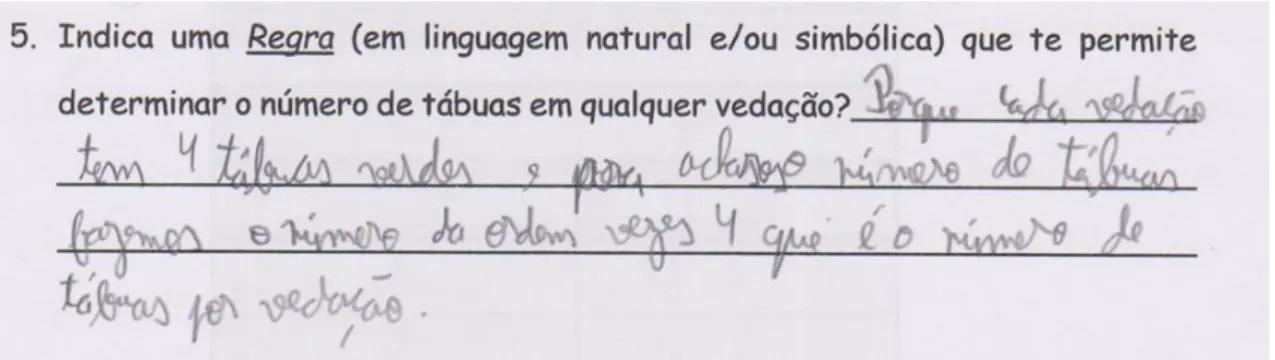 5. Indica uma Regra (em linguagem natural e/ou simbólica) que te permite
determinar o número de tábuas em qualquer vedação? Porque cada vedação
tem 4 tábuas verdes e para acharmos o número de tábuas
fazemos o número da ordem vezes 4 que é o número de
tábuas por vedação.